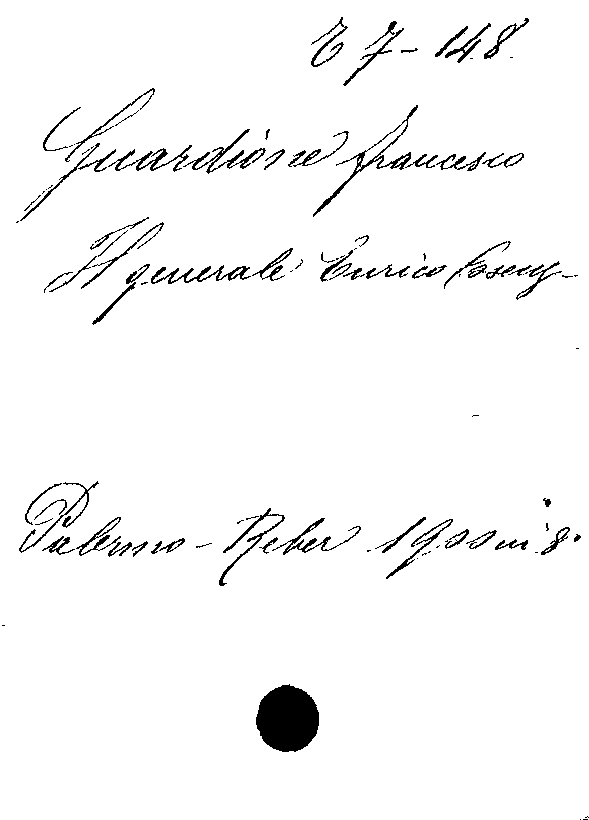 E 7-148.
Guardióne Francesco
Il generale Enrico Coseny-
Palermo - Reber 1900 in 8.